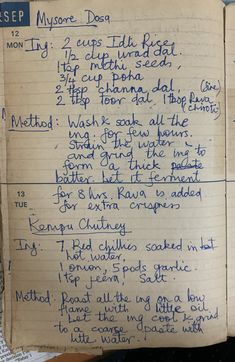 SEP
Mysore Dosa
12
MON
Ing: 2 cups Idli Rice,
1/2 cup urad dal.
1 tsp methi seeds,
3/4 cup poha
2 tbsp channa dal,
2 tbsp toor dal, 1 tbsp Rava
Method: Wash & soak all the
ing. for few hours.
Strain the water
and grind the ing to
form a thick paste
batter. Let it ferment
13
TUE
for 8 hrs. Rava is added
for extra crispness
Chutney
Ing: 7 Red chillies soaked in hot
hot water,
1 onion, 5 pods garlic.
1 tsp jeera, Salt.
Method: Roast all the ing on a low
flame with little oil.
Let the ing cool & grind
to a coarse paste with
little water.